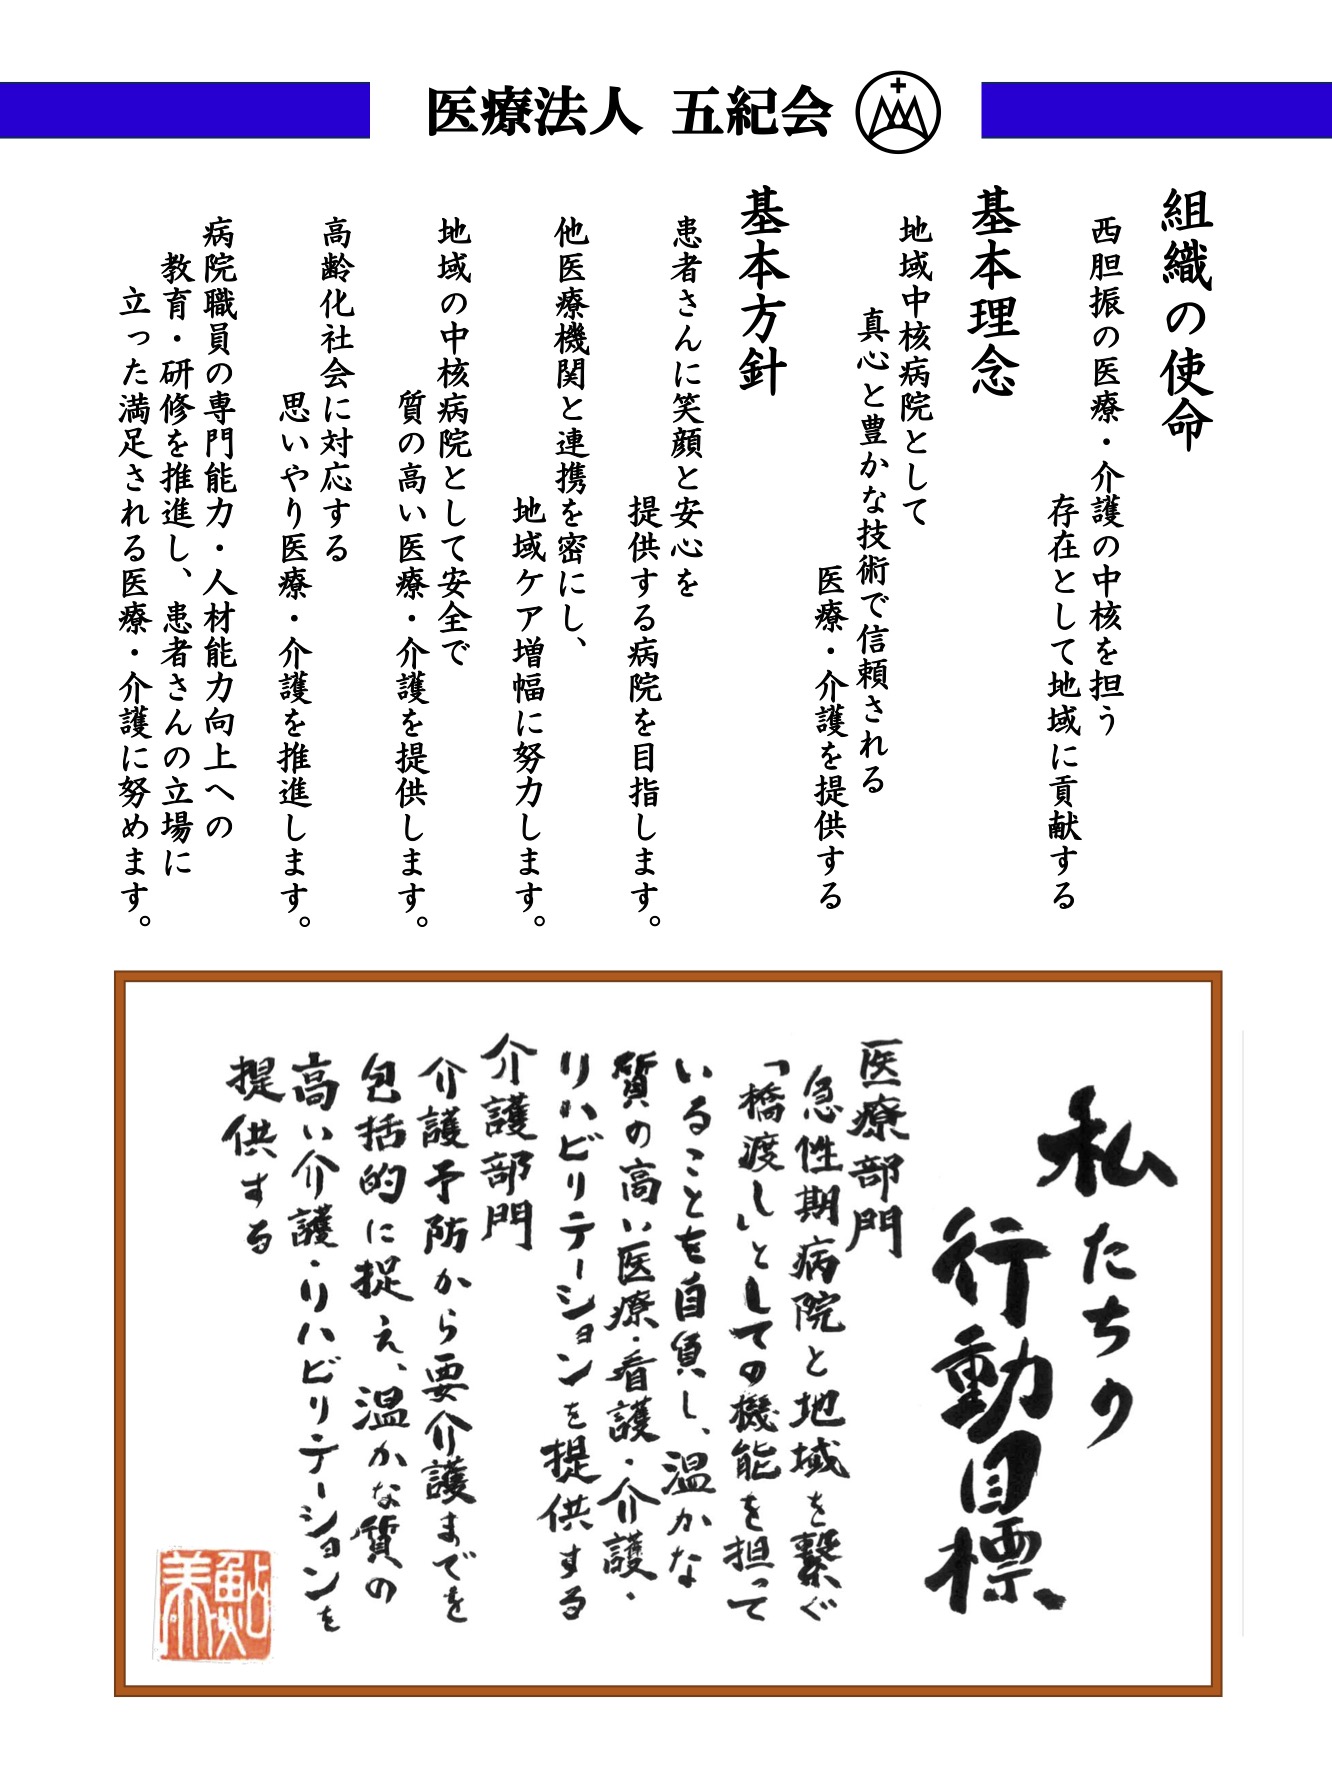 医療法人 五紀会
組織の使命
西胆振の医療・介護の中核を担う
存在として地域に貢献する
基本理念
地域中核病院として
真心と豊かな技術で信頼される
医療・介護を提供する
基本方針
患者さんに笑顔と安心を
提供する病院を目指します。
他医療機関と連携を密にし、
地域ケア増幅に努力します。
地域の中核病院として安全で
質の高い医療・介護を提供します。
高齢化社会に対応する
思いやり医療・介護を推進します。
病院職員の専門能力・人材能力向上への
教育・研修を推進し、患者さんの立場に
立った満足される医療・介護に努めます。
私たちの
行動目標
医療部門
急性期病院と地域を繋ぐ
「橋渡し」としての機能を担って
いることを自負し、温かな
質の高い医療・看護・介護・
リハビリテーションを提供する
介護部門
介護予防から要介護までを
包括的に捉え、温かな質の
高い介護・リハビリテーションを
提供する